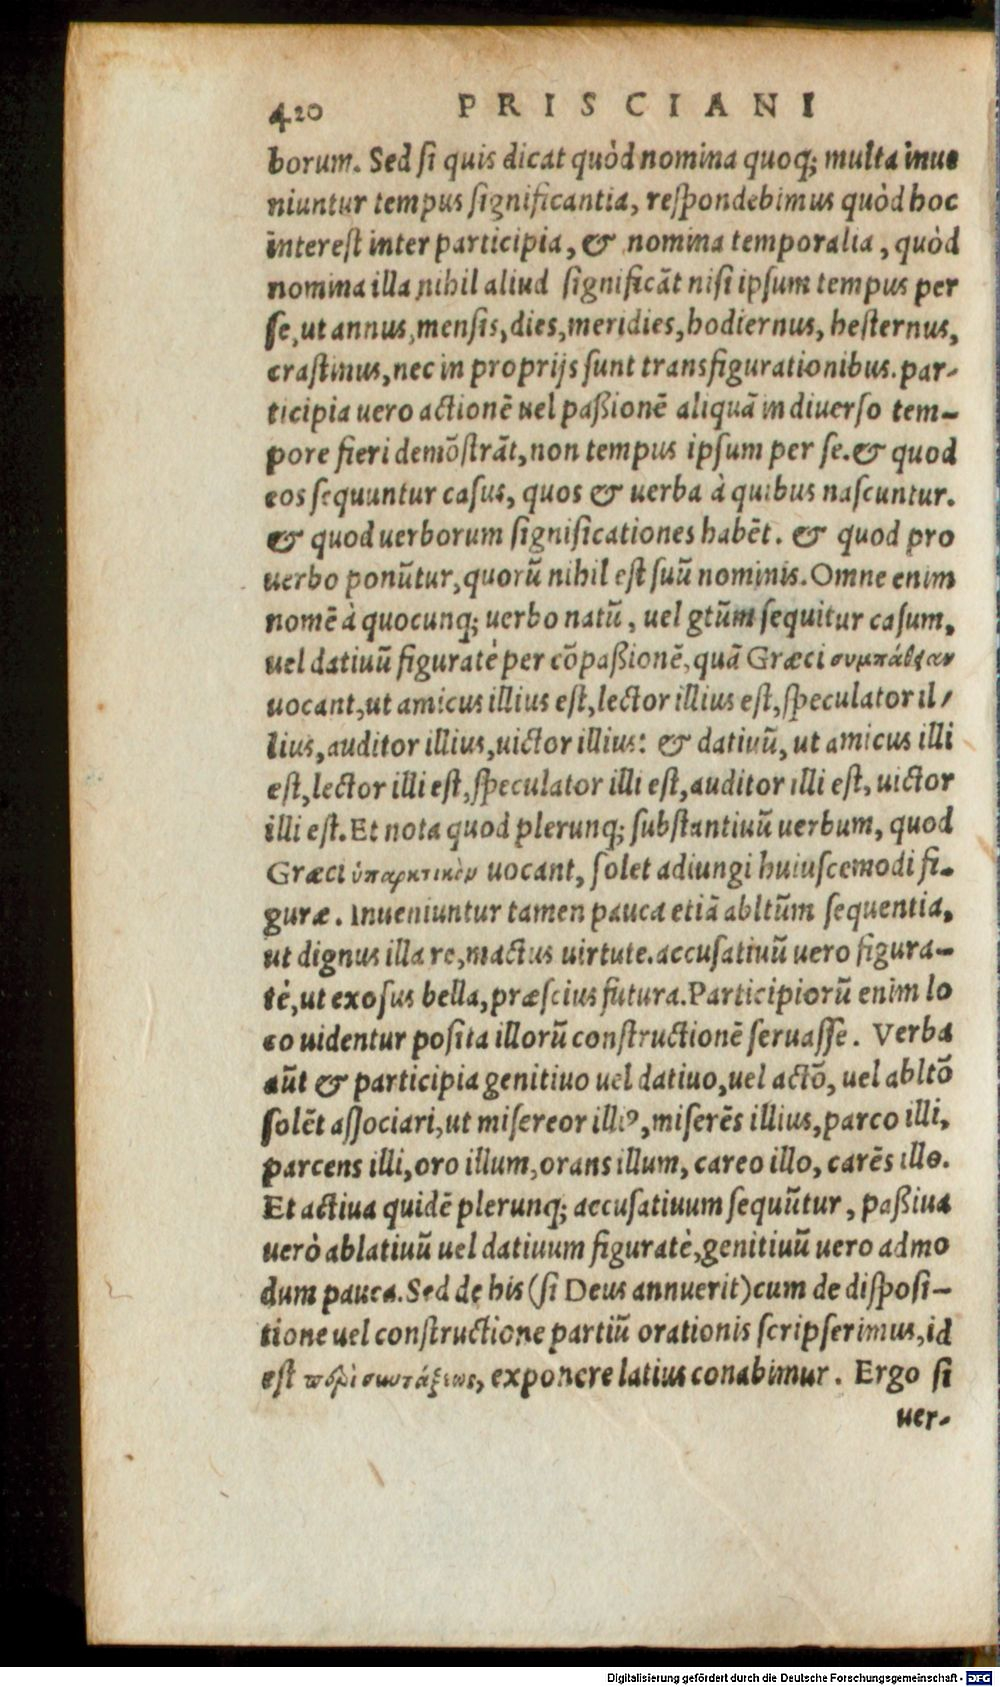 420 PRISCIANI
borum. Sed si quis dicat quòd nomina quoq; multa inue
niuntur tempus significantia, respondebimus quòd hoc
interest inter participia, & nomina temporalia, quòd
nomina illa nihil aliud significāt nisi ipsum tempus per
se, ut annus, mensis, dies, meridies, hodiernus, hesternus,
crastinus, nec in proprijs sunt transfigurationibus. par-
ticipia uero actionē uel paßionē aliquā in diuerso tem-
pore fieri demōstrāt, non tempus ipsum per se. & quod
eos sequuntur casus, quos & uerba à quibus nascuntur.
& quod uerborum significationes habēt. & quod pro
uerbo ponūtur, quorū nihil est suū nominis. Omne enim
nomē à quocunq; uerbo natū, uel gtūm sequitur casum,
uel datiuū figuratè per cōpaßionē, quā Græci συμπάθειαν
uocant, ut amicus illius est, lector illius est, speculator il-
lius, auditor illius, uictor illius: & datiuū, ut amicus illi
est, lector illi est, speculator illi est, auditor illi est, uictor
illi est. Et nota quod plerunq; substantiuū uerbum, quod
Græci ὑπαρκτικὸν uocant, solet adiungi huiuscemodi fi-
guræ. Inueniuntur tamen pauca etiā abltūm sequentia,
ut dignus illa re, mactus uirtute. accusatiuū uero figura-
tè, ut exosus bella, præscius futura. Participiorū enim lo
co uidentur posita illorū constructionē seruasse. Verba
aūt & participia genitiuo uel datiuo, uel actō, uel abltō
solēt associari, ut misereor illiꝰ, miserēs illius, parco illi,
parcens illi, oro illum, orans illum, careo illo, carēs illo.
Et actiua quidē plerunq; accusatiuum sequūtur, paßiua
uerò ablatiuū uel datiuum figuratè, genitiuū uero admo
dum pauca. Sed de his (si Deus annuerit) cum de disposi-
tione uel constructione partiū orationis scripserimus, id
est περὶ συντάξεως, exponere latius conabimur. Ergo si
uer-
Digitalisierung gefördert durch die Deutsche Forschungsgemeinschaft - DFG